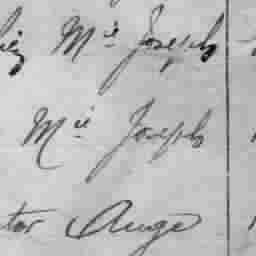 Mie Joseph
Mie Joseph
tor Ange